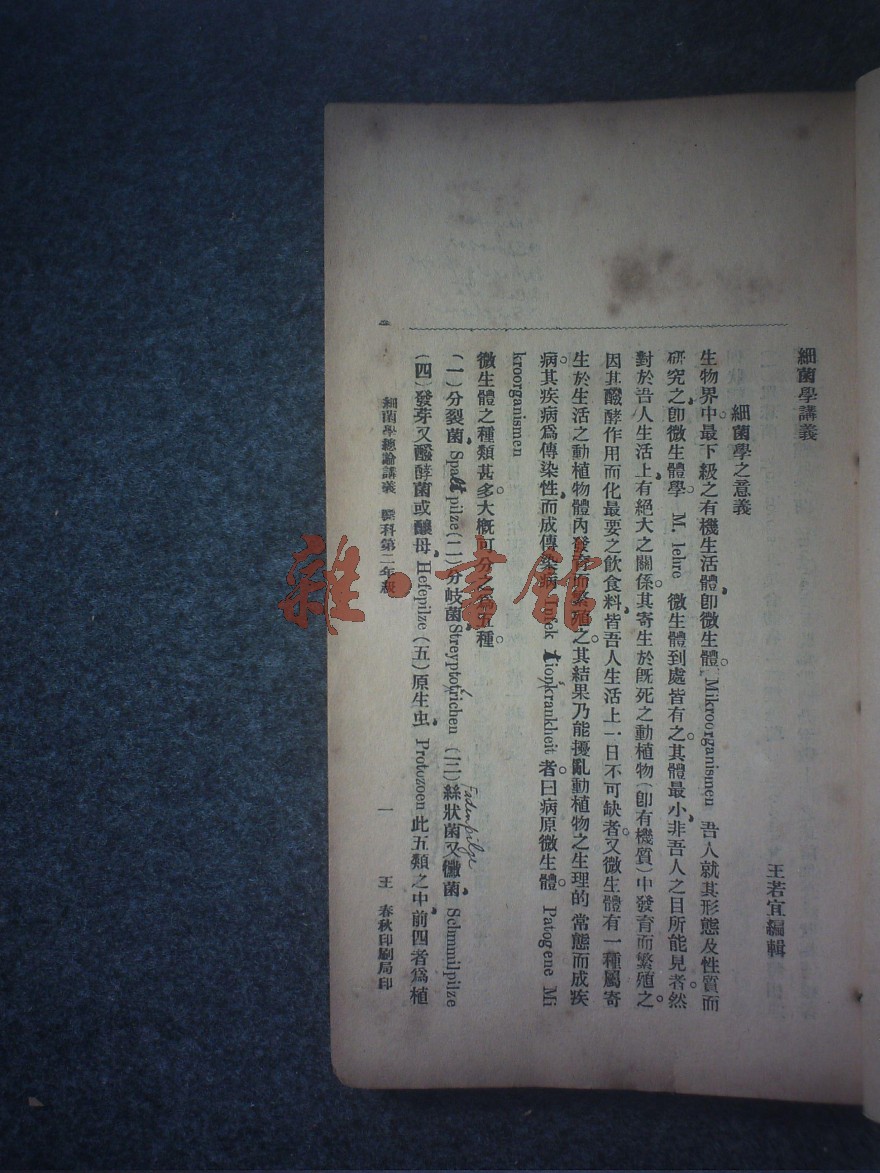 細菌學講義
王若宜編輯
細菌學之意義
生物界中最下級之有機生活體，卽微生體。Mikroorganismen 吾人就其形態及性質而
研究之，卽微生體學。M. lehre 微生體到處皆有之。其體最小，非吾人之目所能見者。然
對於吾人生活上，有絕大之關係。其寄生於旣死之動植物（卽有機質）中發育而繁殖之。
因其醱酵作用而化最要之飲食料，皆吾人生活上一日不可缺者。又微生體有一種屬寄
生於生活之動植物體內發育而繁殖之。其結果乃能擾亂動植物之生理的常態而成疾
病。其疾病爲傳染性，而成傳染病 Infek tionkrankheit 者。曰病原微生體。Patogene Mi
kroorganismen
微生體之種類甚多。大槪可分之爲五種。
（一）分裂菌，Spaltpilze（二）分歧菌，Streyptotrichen （三）絲狀菌又黴菌，Schmmilpilze
Fadenpilze
（四）發芽又醱酵菌或釀母，Hefepilze（五）原生虫，Protozoen 此五類之中，前四者爲植
細菌學總論講義 醫科第二年級 一 王 春秋印刷局印
雜·書館